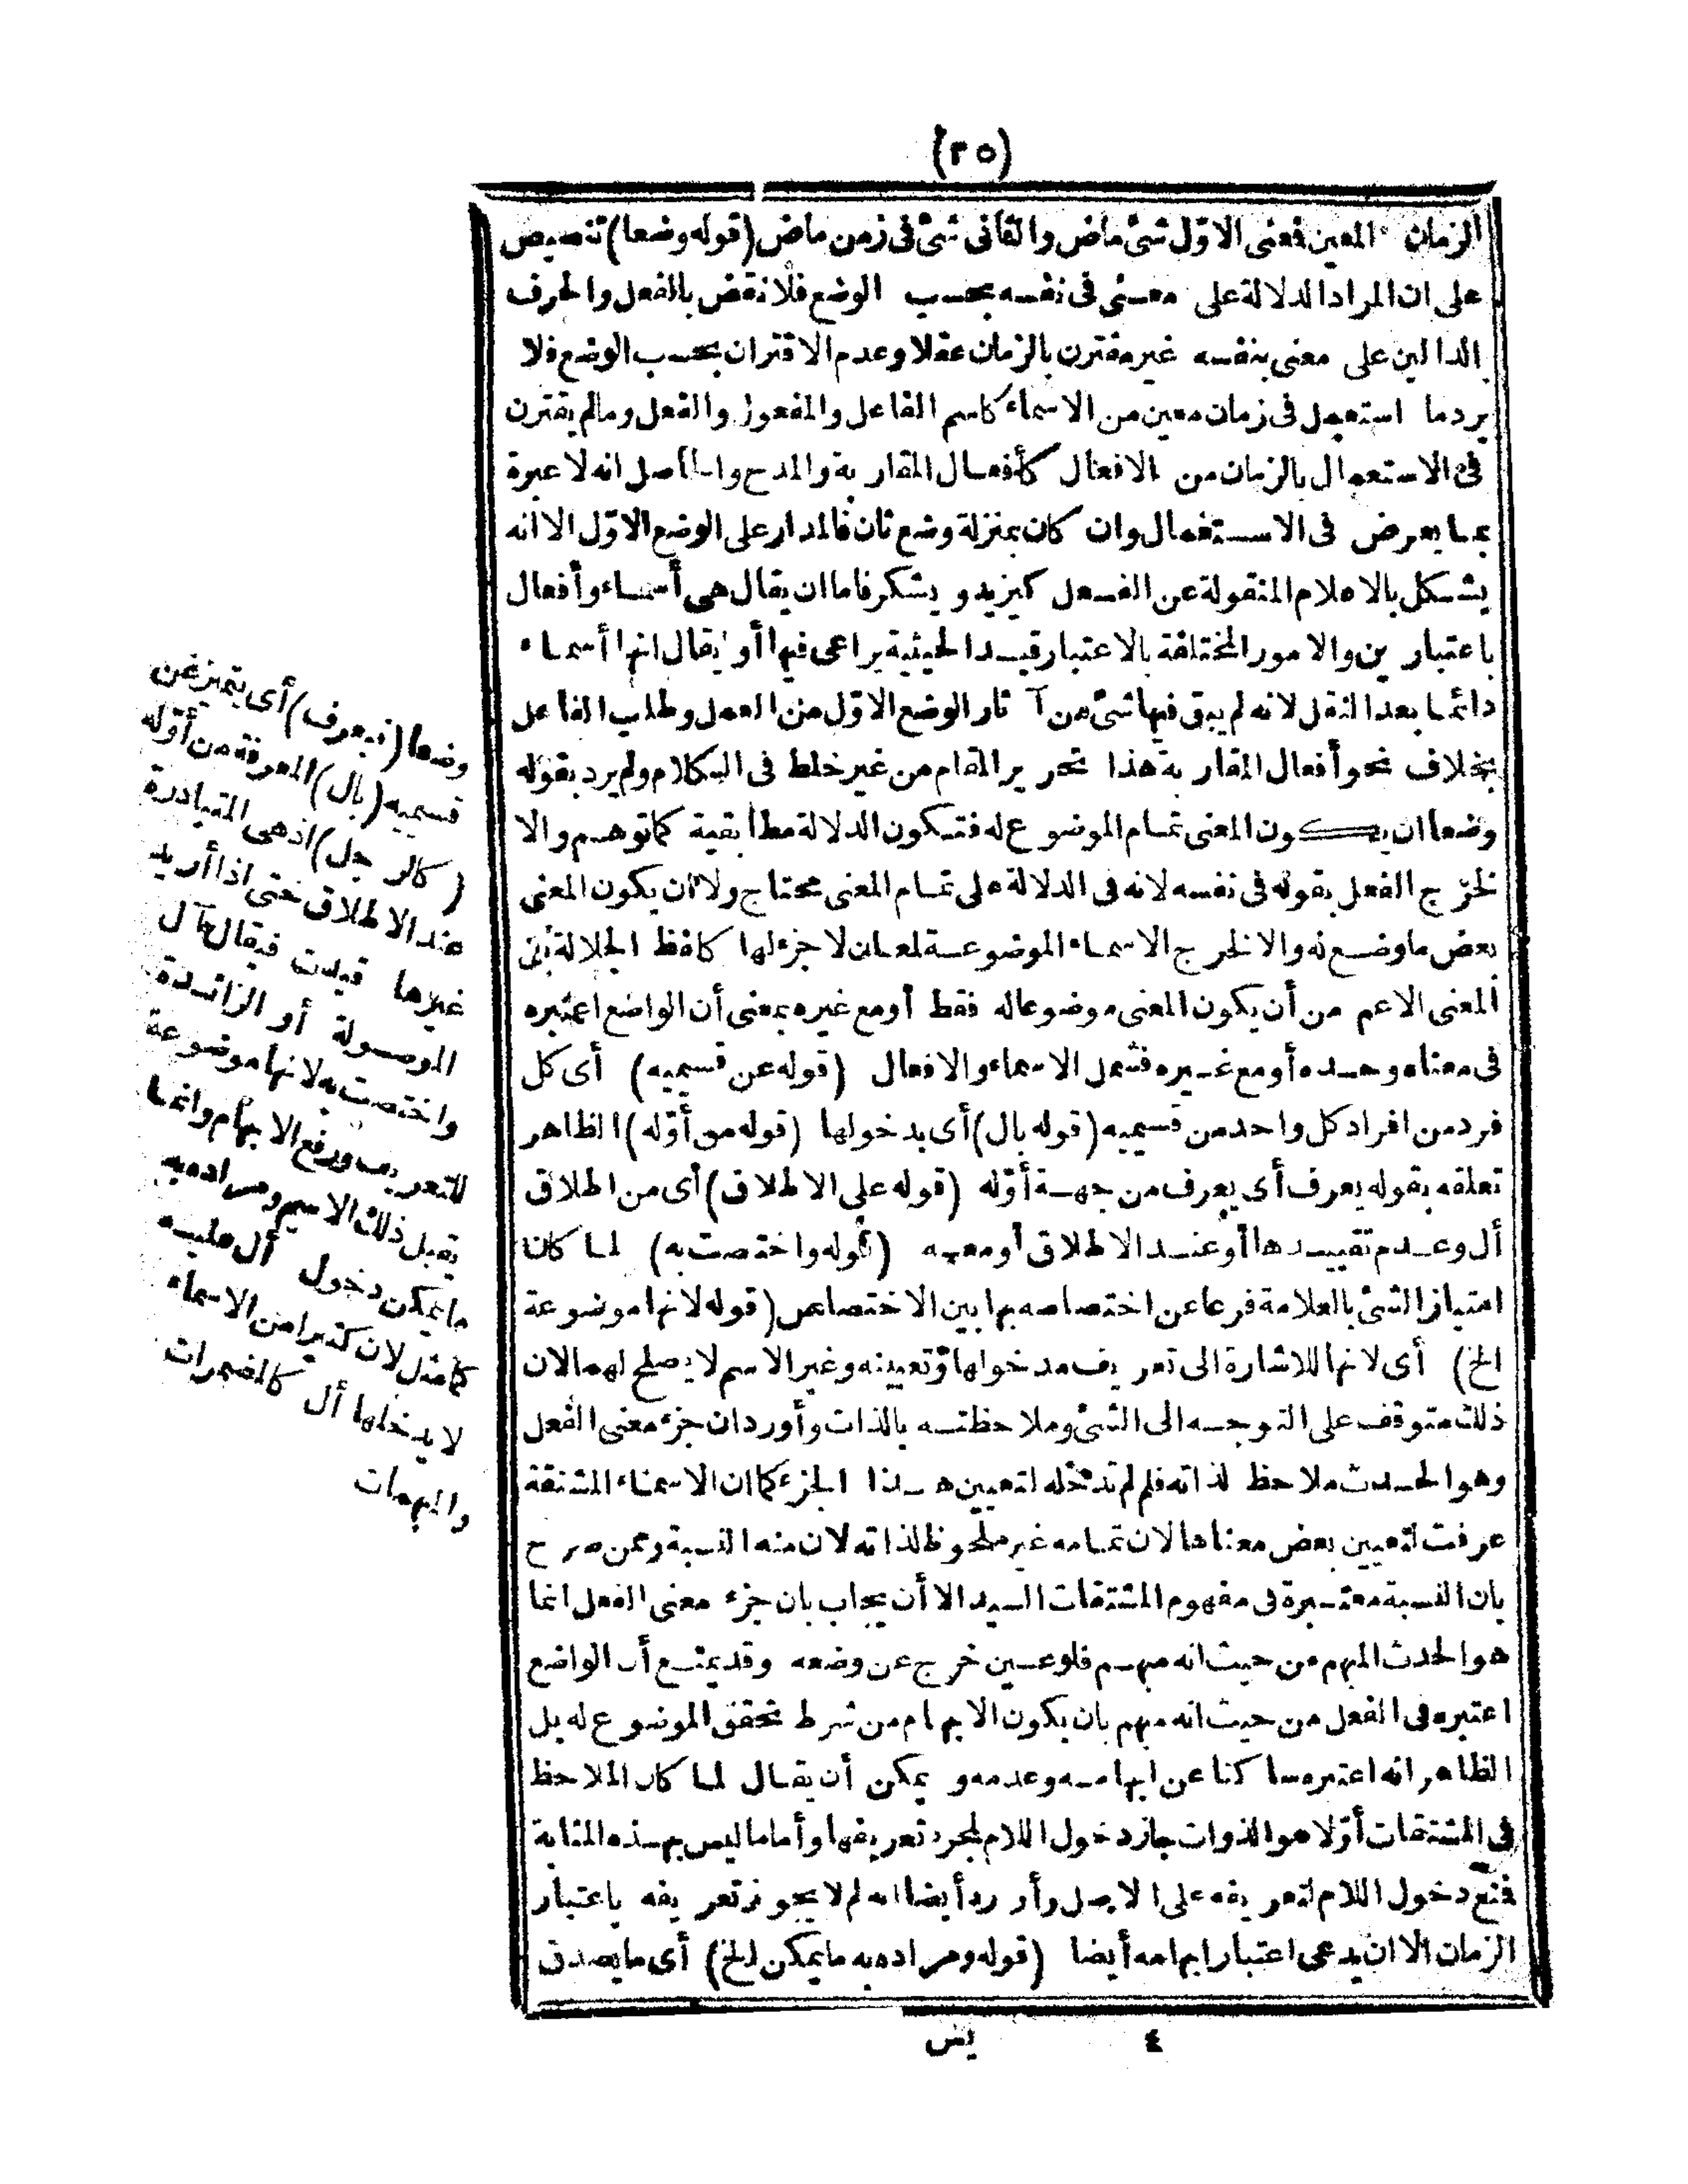 (٢٥)
الزمان المعين فمعنى الاوّل شئ ماض والثانى شئ فى زمن ماض (قوله وضعا) تنصيص
على ان المراد الدلالة على معنى فى نفسه بحسب الوضع فلا نقض بالفعل والحرف
الدالين على معنى بنفسه غير مقترن بالزمان عقلا وعدم الاقتران بحسب الوضع فلا
يرد ما استعمل فى زمان معين من الاسماء كاسم الفاعل والمفعول والفعل ومالم يقترن
فى الاستعمال بالزمان من الافعال كأفعال المقاربة والمدح والحاصل انه لا عبرة
بما يعرض فى الاستعمال وان كان بمنزلة وضع ثان فالمدار على الوضع الاوّل الا انه
يشكل بالاعلام المنقولة عن الفعل كيزيد ويشكر فاما ان يقال هى أسماء وأفعال
باعتبارين والامور المختلفة بالاعتبار قيد الحيثية يراعى فيها أو يقال انها أسماء
دائما بعد النقل لانه لم يبق فيها شئ من آثار الوضع الاوّل من العمل وطلب الفاعل
بخلاف نحو أفعال المقاربة هذا تحرير المقام من غير خلط فى الكلام ولم يرد بقوله
وضعا ان يكون المعنى تمام الموضوع له فتكون الدلالة مطابقية كما توهم والا
لخرج الفعل بقوله فى نفسه لانه فى الدلالة على تمام المعنى محتاج ولا ان يكون المعنى
بعض ما وضع له والا لخرج الاسماء الموضوعة لمعان لا جزء لها كلفظ الجلالة بل
المعنى الاعم من أن يكون المعنى موضوعا له فقط أو مع غيره بمعنى أن الواضع اعتبره
فى معناه وحده أو مع غيره فشمل الاسماء والافعال (قوله عن قسيميه) أى كل
فرد من افراد كل واحد من قسيميه (قوله بال) أى بدخولها (قوله من أوّله) الظاهر
تعلقه بقوله يعرف أى يعرف من جهة أوّله (قوله على الاطلاق) أى من اطلاق
أل وعدم تقييدها أو عند الاطلاق أو معيه (قوله واختصت به) لما كان
امتياز الشئ بالعلامة فرعا عن اختصاصه بها بين الاختصاص (قوله لانها موضوعة
الخ) أى لانها للاشارة الى تعريف مدخولها وتعيينه وغير الاسم لا يصلح لهما لان
ذلك متوقف على التوجه الى الشئ وملاحظته بالذات وأورد ان جزء معنى الفعل
وهو الحدث ملاحظ لذاته فلم لم تدخله لتعيين هذا الجزء كما ان الاسماء المشتقة
عرفت لتعيين بعض معناها لان تمامه غير ملحوظ لذاته لان منه النسبة وممن صرح
بان النسبة معتبرة فى مفهوم المشتقات السيد الا أن يجاب بان جزء معنى الفعل انما
هو الحدث المبهم من حيث انه مبهم فلو عين خرج عن وضعه وقد يمنع أن الواضع
اعتبره فى الفعل من حيث انه مبهم بان يكون الابهام من شرط تحقق الموضوع له بل
الظاهر انه اعتبره ساكتا عن ابهامه وعدمه ويمكن أن يقال لما كان الملاحظ
فى المشتقات أوّلا هو الذوات جاز دخول اللام لمجرد تعريفها وأما ما ليس بهذه المثابة
فمنع دخول اللام لتعريفه على الاصل وأورد أيضا انه لم لا يجوز تعريفه باعتبار
الزمان الا ان يدعى اعتبار ابهامه أيضا (قوله ومراده به ما يمكن الخ) أى ما يصدق
وضعا (فيعرف) أى يتميز عن
قسيميه (بال) المعرفة من أوّله
(كالرجل) اذ هى المتبادرة
عند الاطلاق حتى اذا أريد
غيرها قيدت فيقال أل
الموصولة أو الزائدة
واختصت به لانها موضوعة
للتعريف ورفع الابهام وانما
يقبل ذلك الاسم ومراده به
ما يمكن دخول أل عليه
كما مثل لان كثيرا من الاسماء
لا يدخلها أل كالمضمرات
والمبهمات
٤ يس